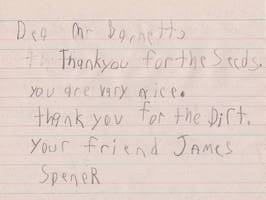 Dea Mr Barnett,
th Thankyou for the Seeds.
you are very nice.
thank you for the Dirt.
Your friend JAMes
SpeneR